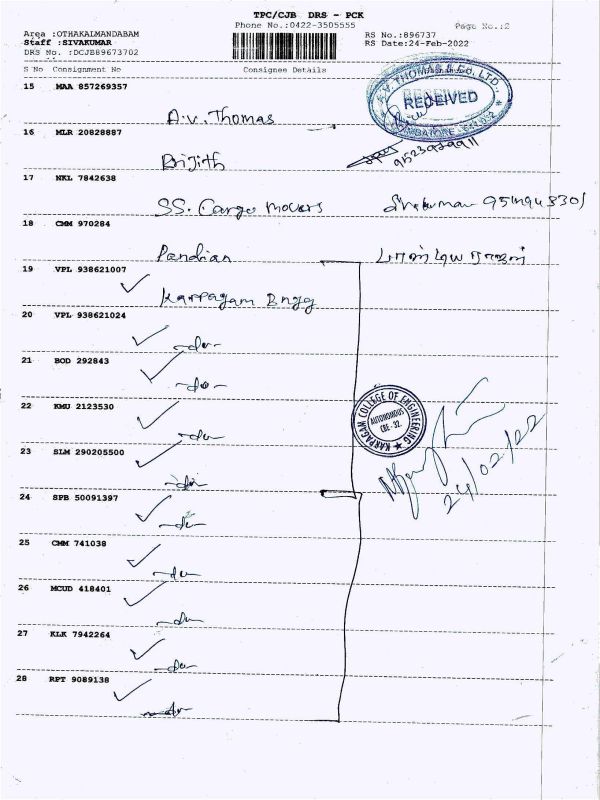 TPC/CJB DRS - PCK
Phone No.:0422-3505555 Page No.:2
Area :OTHAKALMANDABAM RS No.:896737
Staff :SIVAKUMAR RS Date:24-Feb-2022
DRS No. :DCJB89673702
S No Consignment No Consignee Details
15 MAA 857269357
A.V. THOMAS & Co. LTD.,
RECEIVED
A.V. Thomas
16 MLR 20828887
Brijith
17 NKL 7842638
SS. Cargo movers
18 CMM 970284
Pandian பாண்டிய ராஜன்
19 VPL 938621007
Karpagam Engg
20 VPL 938621024
-do-
21 BOD 292843
-do-
22 KMU 2123530
-do-
KARPAGAM COLLEGE OF ENGINEERING
AUTONOMOUS
CBE - 32.
23 SLM 290205500
-do-
24/02/22
24 SPB 50091397
-do-
25 CMM 741038
-do-
26 MCUD 418401
-do-
27 KLK 7942264
-do-
28 RPT 9089138
-do-